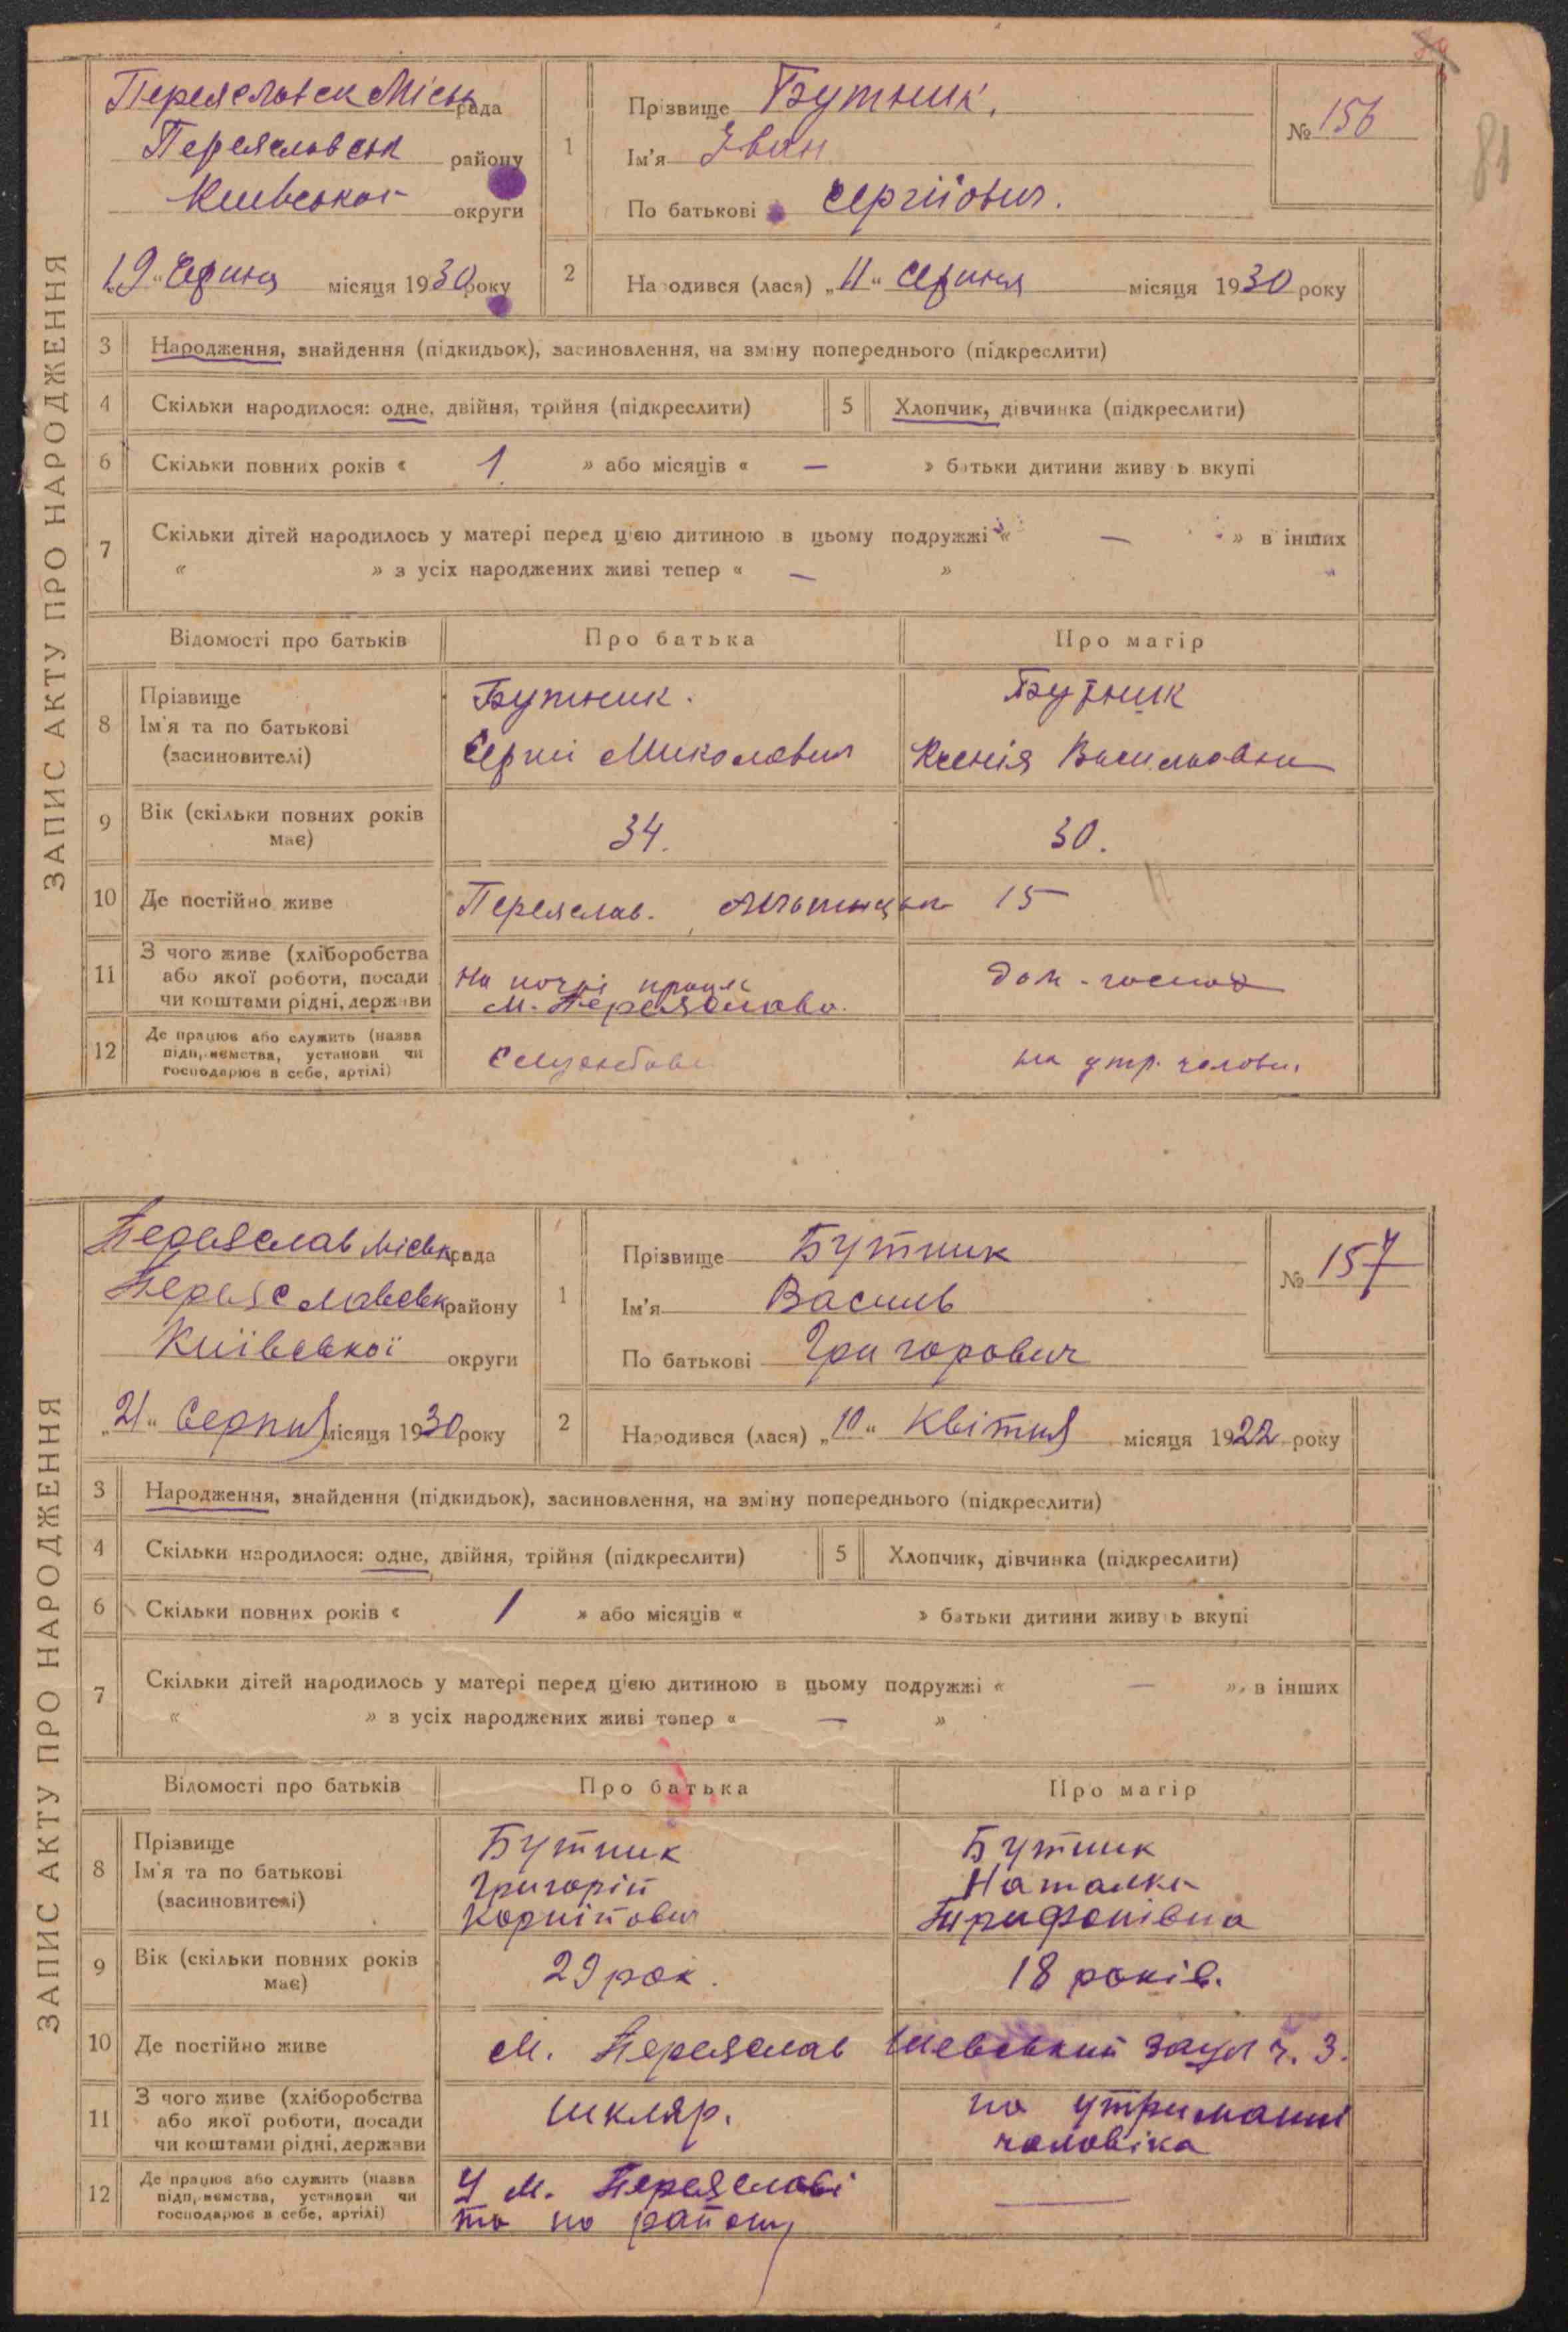 81
ЗАПИС АКТУ ПРО НАРОДЖЕННЯ
Переяславськ Міськ рада
Переяславськ району
Київської округи
„19“ Серпня місяця 1930 року
1
Прізвище Бутник.
Ім'я Іван
По батькові Сергійович.
№ 156
2
Народився (лася) „11“ Серпня місяця 1930 року
3 Народження, знайдення (підкидьок), засиновлення, на зміну попереднього (підкреслити)
4 Скільки народилося: одне, двійня, трійня (підкреслити) 5 Хлопчик, дівчинка (підкреслити)
6 Скільки повних років « 1 » або місяців « — » батьки дитини живуть вкупі
7 Скільки дітей народилось у матері перед цією дитиною в цьому подружжі « — » в інших
« » з усіх народжених живі тепер « — »
Відомості про батьків Про батька Про матір
8 Прізвище Бутник. Бутник
Ім'я та по батькові Сергій Миколович Ксенія Васильовна
(засиновителі)
9 Вік (скільки повних років має) 34. 30.
10 Де постійно живе Переяслав. 15
11 З чого живе (хліборобства
або якої роботи, посади
чи коштами рідні, держави
На праці
м. Переяслава. дом-господ
12 Де працює або служить (назва
підприємства, установи чи
господарює в себе, артілі)
Службов на утр. чолов.
ЗАПИС АКТУ ПРО НАРОДЖЕННЯ
Переяслав міськ рада
Переяславськ району
Київської округи
„21“ Серпня місяця 1930 року
1
Прізвище Бутник
Ім'я Василь
По батькові Григорович
№ 157
2
Народився (лася) „10“ Квітня місяця 1922 року
3 Народження, знайдення (підкидьок), засиновлення, на зміну попереднього (підкреслити)
4 Скільки народилося: одне, двійня, трійня (підкреслити) 5 Хлопчик, дівчинка (підкреслити)
6 Скільки повних років « 1 » або місяців « » батьки дитини живуть вкупі
7 Скільки дітей народилось у матері перед цією дитиною в цьому подружжі « — » в інших
« » з усіх народжених живі тепер « — »
Відомості про батьків Про батька Про матір
8 Прізвище Бутник Бутник
Ім'я та по батькові Григорій Наталка
(засиновителі) Корнійович Трифонівна
9 Вік (скільки повних років має) 29 рок. 18 років.
10 Де постійно живе м. Переяслав Шевський заул ч. 3.
11 З чого живе (хліборобства
або якої роботи, посади
чи коштами рідні, держави
шкляр. на утриманні
чоловіка
12 Де працює або служить (назва
підприємства, установи чи
господарює в себе, артілі)
У м. Переяславі
та по району